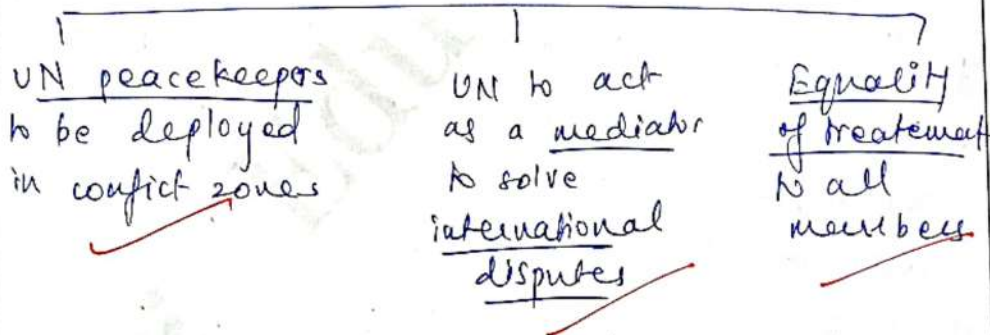 UN peacekeepers
to be deployed
in confict zones
UN to act
as a mediator
to solve
international
disputes
Equality
of treatemat
to all
members